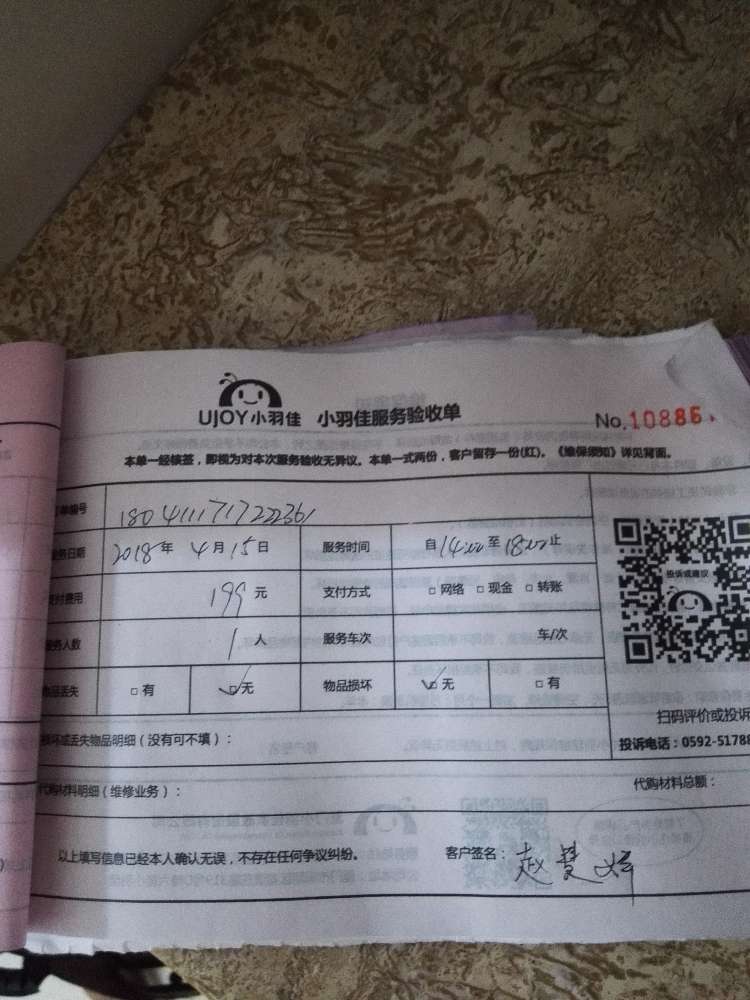 UJOY小羽佳 小羽佳服务验收单 No.10886
本单一经核签，即视为对本次服务验收无异议。本单一式两份，客户留存一份(红)。《维保须知》详见背面。
单编号 180411171722361
务日期 2018年 4月15日 服务时间 自14:00至18:00止
支付费用 199元 支付方式 □网络 □现金 □转账
服务人数 1人 服务车次 车/次
物品丢失 □有 ☑无 物品损坏 ☑无 □有
投诉或建议
扫码评价或投诉
损坏或丢失物品明细（没有可不填）：
投诉电话：0592-51788
代购材料明细（维修业务）：
代购材料总额：
以上填写信息已经本人确认无误，不存在任何争议纠纷。
客户签名：赵慧婷